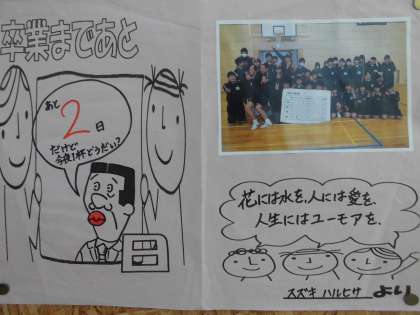 卒業まであと
あと
2日
だけど
今夜1杯どうだい?
花には水を、人には愛を、
人生にはユーモアを、
スズキ ハルヒサ より